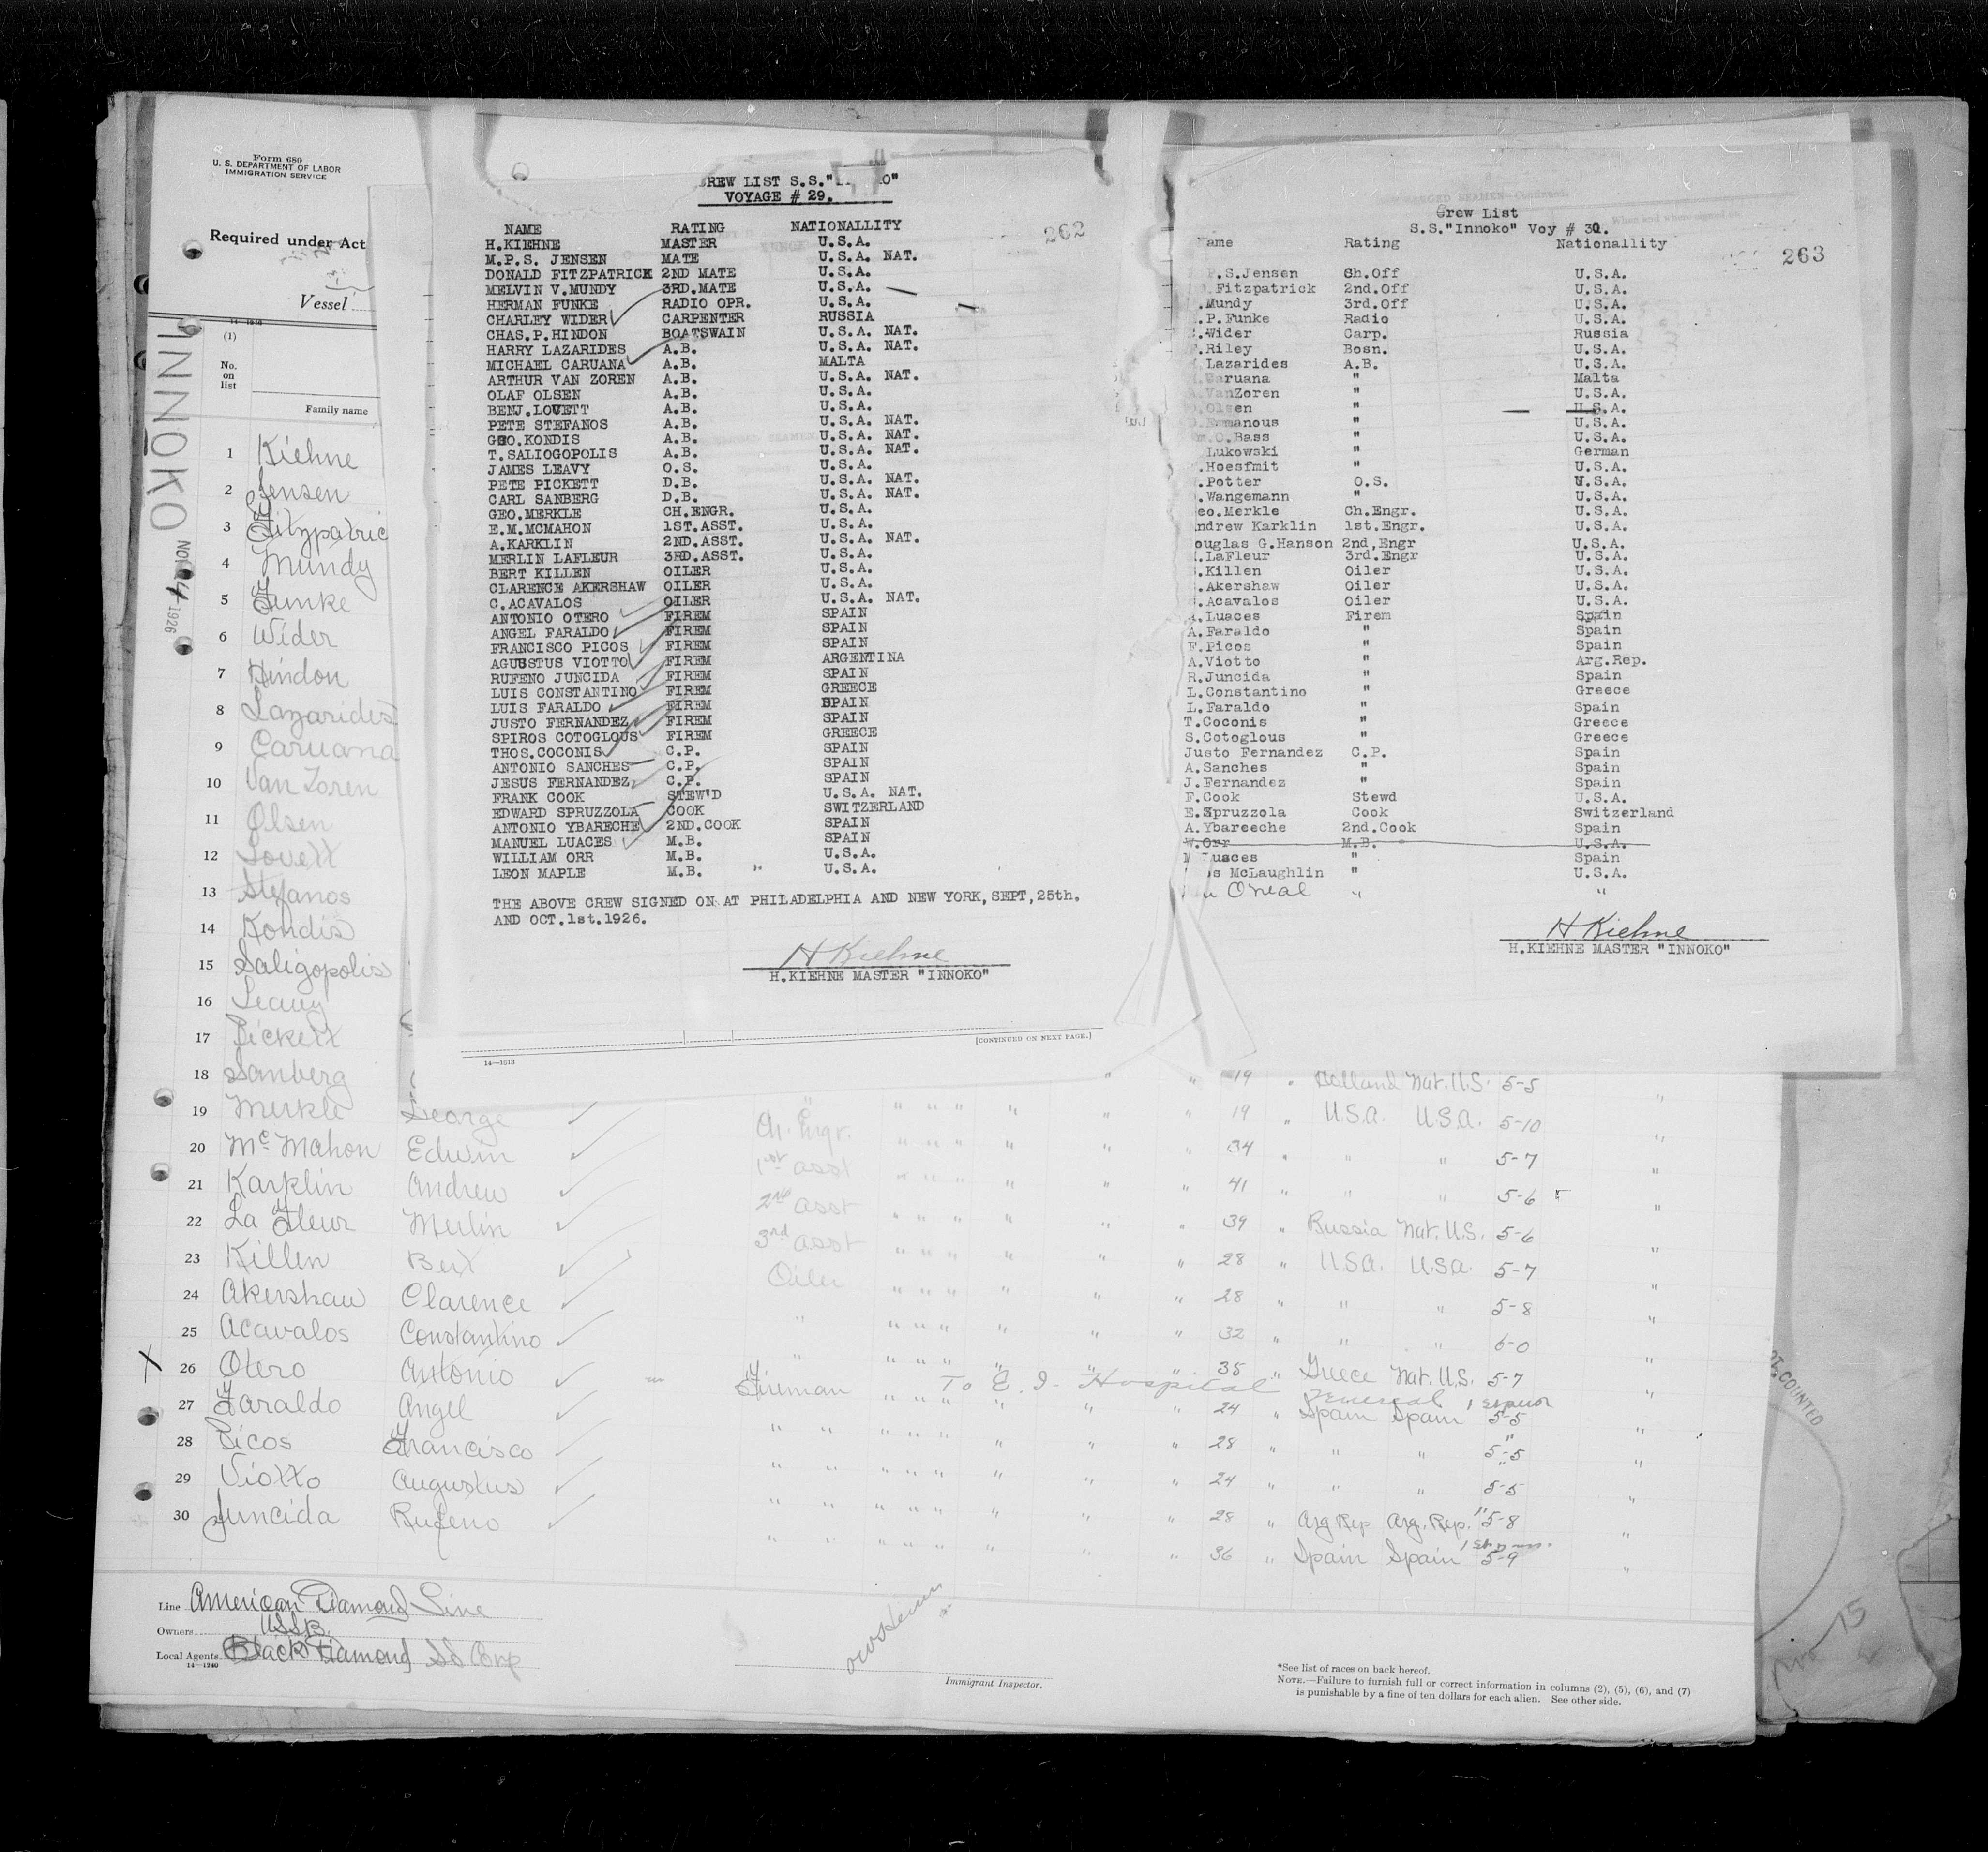 Form 680
U. S. DEPARTMENT OF LABOR
IMMIGRATION SERVICE
Required under Act
Vessel
14—1240
(1)
No. on list
Family name
INNOKO
NOV 24 1926
1 Kiehne
2 Jensen
3 Fitzpatric
4 Mundy
5 Funke
6 Wider
7 Hindon
8 Lazarides
9 Caruana
10 Van Zoren
11 Olsen
12 Lovett
13 Stefanos
14 Kondis
15 Saligopolis
16 Leavy
17 Pickett
18 Sanberg
CREW LIST S.S."I   KO"
VOYAGE # 29.
262
NAME RATING NATIONALLITY
H.KIEHNE MASTER U.S.A.
M.P.S. JENSEN MATE U.S.A. NAT.
DONALD FITZPATRICK 2ND MATE U.S.A.
MELVIN V.MUNDY 3RD.MATE U.S.A.
HERMAN FUNKE RADIO OPR. U.S.A.
CHARLEY WIDER CARPENTER RUSSIA
CHAS.P.HINDON BOATSWAIN U.S.A. NAT.
HARRY LAZARIDES A.B. U.S.A. NAT.
MICHAEL CARUANA A.B. MALTA
ARTHUR VAN ZOREN A.B. U.S.A. NAT.
OLAF OLSEN A.B. U.S.A.
BENJ.LOVETT A.B. U.S.A.
PETE STEFANOS A.B. U.S.A. NAT.
GEO.KONDIS A.B. U.S.A. NAT.
T.SALIOGOPOLIS A.B. U.S.A. NAT.
JAMES LEAVY O.S. U.S.A.
PETE PICKETT D.B. U.S.A. NAT.
CARL SANBERG D.B. U.S.A. NAT.
GEO.MERKLE CH.ENGR. U.S.A.
E.M.MCMAHON 1ST.ASST. U.S.A.
A.KARKLIN 2ND.ASST. U.S.A. NAT.
MERLIN LAFLEUR 3RD.ASST. U.S.A.
BERT KILLEN OILER U.S.A.
CLARENCE AKERSHAW OILER U.S.A.
C.ACAVALOS OILER U.S.A. NAT.
ANTONIO OTERO FIREM SPAIN
ANGEL FARALDO FIREM SPAIN
FRANCISCO PICOS FIREM SPAIN
AGUUSTUS VIOTTO FIREM ARGENTINA
RUFENO JUNCIDA FIREM SPAIN
LUIS CONSTANTINO FIREM GREECE
LUIS FARALDO FIREM SPAIN
JUSTO FERNANDEZ FIREM SPAIN
SPIROS COTOGLOUS FIREM GREECE
THOS.COCONIS C.P. SPAIN
ANTONIO SANCHES C.P. SPAIN
JESUS FERNANDEZ C.P. SPAIN
FRANK COOK STEW'D U.S.A. NAT.
EDWARD SPRUZZOLA COOK SWITZERLAND
ANTONIO YBARECHE 2ND.COOK SPAIN
MANUEL LUACES M.B. SPAIN
WILLIAM ORR M.B. U.S.A.
LEON MAPLE M.B. " U.S.A.
THE ABOVE CREW SIGNED ON AT PHILADELPHIA AND NEW YORK, SEPT,25th.
AND OCT.1st.1926.
H Kiehne
H.KIEHNE MASTER "INNOKO"
[CONTINUED ON NEXT PAGE.]
14—1613
Crew List
S.S."Innoko" Voy # 30.
263
ame Rating Nationallity
P.S.Jensen Ch.Off U.S.A.
Fitzpatrick 2nd.Off U.S.A.
.Mundy 3rd.Off U.S.A.
.P.Funke Radio U.S.A.
.Wider Carp. Russia
.Riley Bosn. U.S.A.
Lazarides A.B. U.S.A.
Caruana " Malta
VanZoren " U.S.A.
.Olsen " U.S.A.
.Ermanous " U.S.A.
.O.Bass " U.S.A.
Lukowski " German
.Hoesfmit " U.S.A.
.Potter O.S. U.S.A.
.Wangemann " U.S.A.
eo.Merkle Ch.Engr. U.S.A.
ndrew Karklin 1st.Engr. U.S.A.
ouglas G.Hanson 2nd,Engr U.S.A.
.LaFleur 3rd.Engr U.S.A.
.Killen Oiler U.S.A.
.Akershaw Oiler U.S.A.
.Acavalos Oiler U.S.A.
.Luaces Firem Spain
A.Faraldo " Spain
F.Picos " Spain
A.Viotto " Arg.Rep.
R.Juncida " Spain
L.Constantino " Greece
L.Faraldo " Spain
T.Coconis " Greece
S.Cotoglous " Greece
Justo Fernandez C.P. Spain
A.Sanches " Spain
J.Fernandez " Spain
F.Cook Stewd U.S.A.
E.Spruzzola Cook Switzerland
A.Ybareeche 2nd.Cook Spain
W.Orr M.B. U.S.A.
Luaces " Spain
s McLaughlin " U.S.A.
O'neal " "
H Kiehne
H.KIEHNE MASTER "INNOKO"
" " 19 " Holland Nat. U.S. 5-5 "
19 Merkle George " " " " " " 19 " U.S.A. U.S.A. 5-10 "
20 McMahon Edwin Ch. Engr. " " " " " " 34 " " " 5-7 "
21 Karklin Andrew 1st asst " " " " " " 41 " " " 5-6 "
22 La Fleur Merlin 2nd asst " " " " " " 39 " Russia Nat. U.S. 5-6 "
23 Killen Bert 3rd asst " " " " " " 28 " U.S.A. U.S.A. 5-7 "
24 Akershaw Clarence Oiler " " " " " " 28 " " " 5-8 "
25 Acavalos Constantino " " " " " " " 32 " " " 6-0 "
X 26 Otero Antonio " " " " " " " 35 " Greece Nat. U.S. 5-7 "
To E. I. Hospital
27 Faraldo Angel Fireman " " " " " 24 " Spain Spain 5-5 "
28 Picos Francisco " " " " " " " " 28 " " " 5-5 "
29 Viotto Augustus " " " " " " " " 24 " " " 5-5 "
30 Juncida Rufeno " " " " " " " " 28 " Arg Rep Arg. Rep. 5-8 "
" " " " " " " " 36 " Spain Spain 5-9 "
Line American Diamond Line
Owners U.S.S.B.
Local Agents Black Diamond SS Corp
14—1240
Immigrant Inspector.
*See list of races on back hereof.
NOTE.—Failure to furnish full or correct information in columns (2), (5), (6), and (7)
is punishable by a fine of ten dollars for each alien. See other side.
COUNTED
15